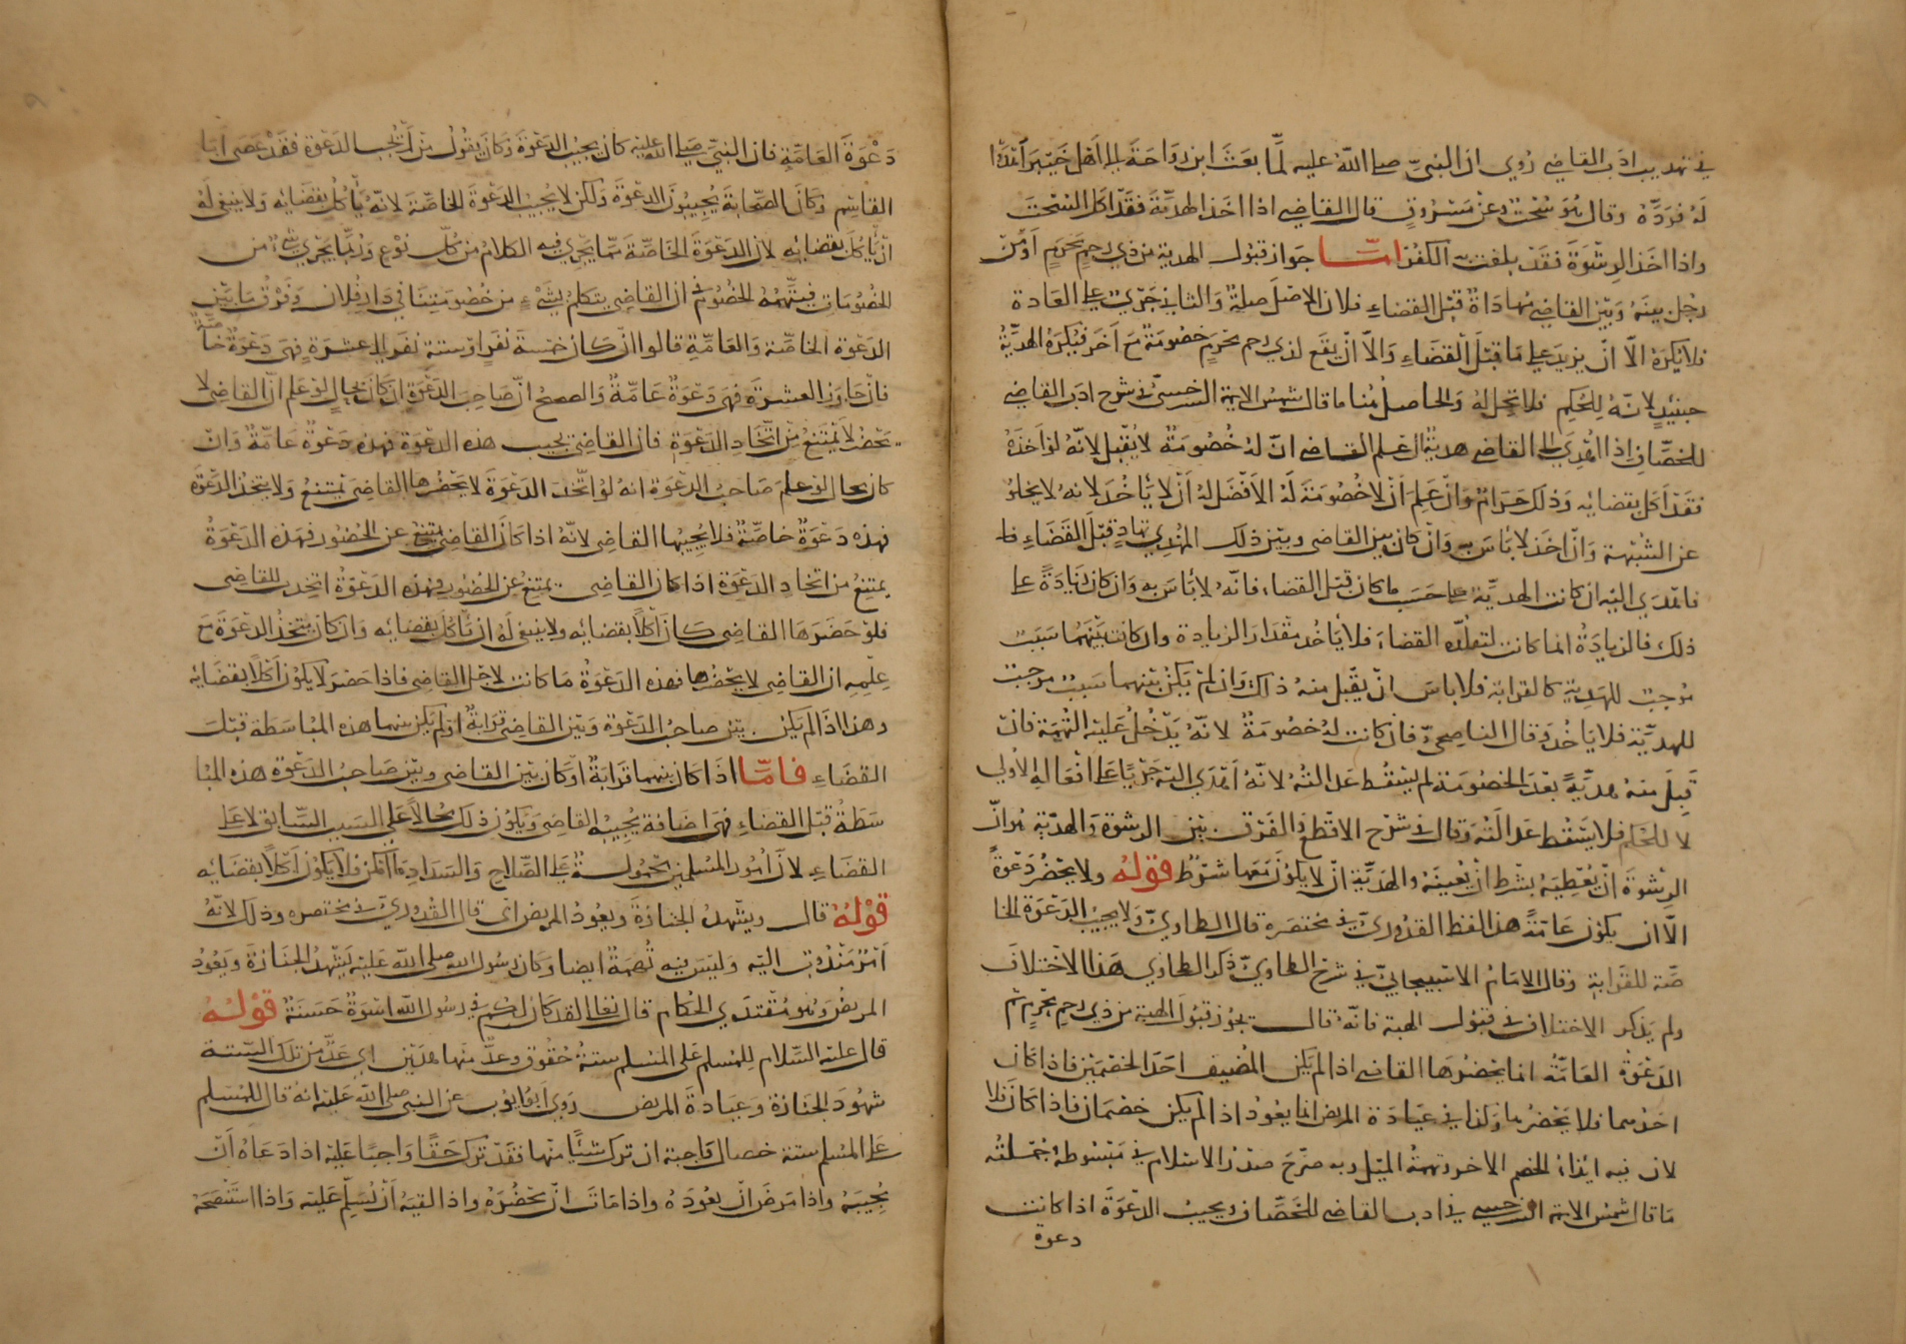 في تهذيب ادب القاضي روي ان النبي صلى الله عليه لما بعث ابن رواحة الى اهل خيبر اهدوا
له فرده وقال هو سحت وعن مسروق قال القاضي اذا اخذ الهدية فقد اكل السحت
واذا اخذ الرشوة فقد بلغت به الكفر اما جواز قبول الهدية من ذي رحم محرم او من
رجل بينه وبين القاضي مهاداة قبل القضاء فلان الاصل صلة والثاني جرى على العادة
فلا يكره الا ان يزيد على ما قبل القضاء والا ان يقع لذي رحم محرم خصومة مع اخر فيكره الهدية
حينئذ لانه للحكم فلا تحل له والحاصل هنا ما قال شمس الايمة السرخسي في شرح ادب القاضي
للخصاف اذا اهدي الى القاضي هدية ان علم القاضي ان له خصومة لا يقبل لانه لو اخذه
فقد اكل بقضايه وذلك حرام وان علم ان لا خصومة له الافضل له ان لا ياخذ لانه لا يخلو
عن الشبهة وان اخذ لا باس به وان كان بين القاضي وبين ذلك المهدي تهاد قبل القضاء فا
فاهدى اليه ان كانت الهدية على حسب ما كان قبل القضاء فانه لا باس به وان كان زيادة على
ذلك فالزيادة انما كانت لتقلده القضاء فلا ياخذ مقدار الزيادة وان كانت بينهما سبب
موجب للهدية كالقرابة فلا باس ان يقبل منه ذلك وان لم يكن بينهما سبب موجب
للهدية فلا ياخذه وقال الناصحي فان كانت له خصومة لانه يدخل عليه التهمة فان
قبل منه هدية بعد الخصومة لم يسقط عدالته لانه اهدى اليه جريا على افعاله الاولى
لا للحكم فلا يسقط عدالته وقال في شرح الاقطع والفرق بين الرشوة والهدية هو ان
الرشوة ان يعطيه بشرط ان يعينه والهدية ان لا يكون معها شرط قوله ولا يحضر دعوة
الا ان يكون عامة هذا لفظ القدوري في مختصره قال الطحاوي ولا يجيب الدعوة الخا
صة للقرابة وقال الامام الاسبيجابي في شرح الطحاوي ذكر الطحاوي هذا الاختلاف
ولم يذكر الاختلاف في قبول الهبة فانه قال يجوز قبول الهبة من ذي رحم محرم ثم
الدعوة العامة انما يحضرها القاضي اذا لم يكن المضيف احد الخصمين فاذا كان
احدهما فلا يحضرها وكذا في عيادة المريض انما يعود اذا لم يكن خصمان فاذا كان فلا
لان فيه ايذاء الخصم الاخر وتهمة الميل وبه صرح صدر الاسلام في مبسوطه جملته
ما قال شمس الايمة السرخسي في ادب القاضي للخصاف ويجيب الدعوة اذا كانت
دعوة
دعوة العامة فان النبي صلى الله عليه كان يجيب الدعوة وكان يقول من لم يجب الدعوة فقد عصى ابا
القاسم وكان الصحابة يجيبون الدعوة ولكن لا يجيب الدعوة الخاصة لانه ياكل بقضايه ولا ينبغي له
ان ياكل بقضايه لان الدعوة الخاصة مما يجري فيه الكلام من كل نوع وربما يجري شيء من
الخصومات فيتهمه الخصوم في ان القاضي يتكلم بشيء من خصومتنا في دار فلان وفرق ما بين
الدعوة الخاصة والعامة قالوا ان كان خمسة نفر او ستة نفر الى عشرة فهي دعوة خاصة
فان جاوز العشرة فهي دعوة عامة والصحيح ان صاحب الدعوة ان كان بحال لو علم ان القاضي لا
يحضر لا يمتنع من اتخاذ الدعوة فان القاضي يجيب هذه الدعوة فهذه دعوة عامة وان
كان بحال لو علم صاحب الدعوة انه لو اتخذ الدعوة لا يحضرها القاضي يمتنع ولا يتخذ الدعوة
فهذه دعوة خاصة فلا يجيبها القاضي لانه اذا كان القاضي يمتنع عن الحضور فهذه الدعوة
يمتنع من اتخاذ الدعوة اذا كان القاضي يمتنع عن الحضور فهذه الدعوة اتخذت للقاضي
فلو حضرها القاضي كان اكلا بقضايه ولا ينبغي له ان ياكل بقضايه وان كان يتخذ الدعوة مع
علمه ان القاضي لا يحضرها فهذه الدعوة ما كانت لاجل القاضي فاذا حضر لا يكون اكلا بقضايه
وهذا اذا لم يكن بين صاحب الدعوة وبين القاضي قرابة او لم يكن بينهما هذه المباسطة قبل
القضاء فاما اذا كان بينهما قرابة او كان بين القاضي وبين صاحب الدعوة هذه المبا
سطة قبل القضاء فهي اضافة يجيبه القاضي ويكون ذلك محالا على السبب السابق لا على
القضاء لان امور المسلمين محمولة على الصلاح والسداد ما امكن فلا يكون اكلا بقضايه
قوله قال ويشهد الجنازة ويعود المريض اي قال القدوري في مختصره وذلك لانه
امر مندوب اليه وليس فيه تهمة ايضا وكان رسول الله صلى الله عليه يشهد الجنازة ويعود
المريض وهو مقتدي الحكام قال تعالى لقد كان لكم في رسول الله اسوة حسنة قوله
قال عليه السلام للمسلم على المسلم ستة حقوق وعد منها هذين اي عد من تلك الستة
شهود الجنازة وعيادة المريض روى ابو ايوب عن النبي صلى الله عليه انه قال للمسلم
على المسلم ستة خصال واجبة ان ترك شيئا منها فقد ترك حقا واجبا عليه اذا دعاه ان
يجيبه واذا مرض ان يعوده واذا مات ان يحضره واذا لقيه ان يسلم عليه واذا استنصحه